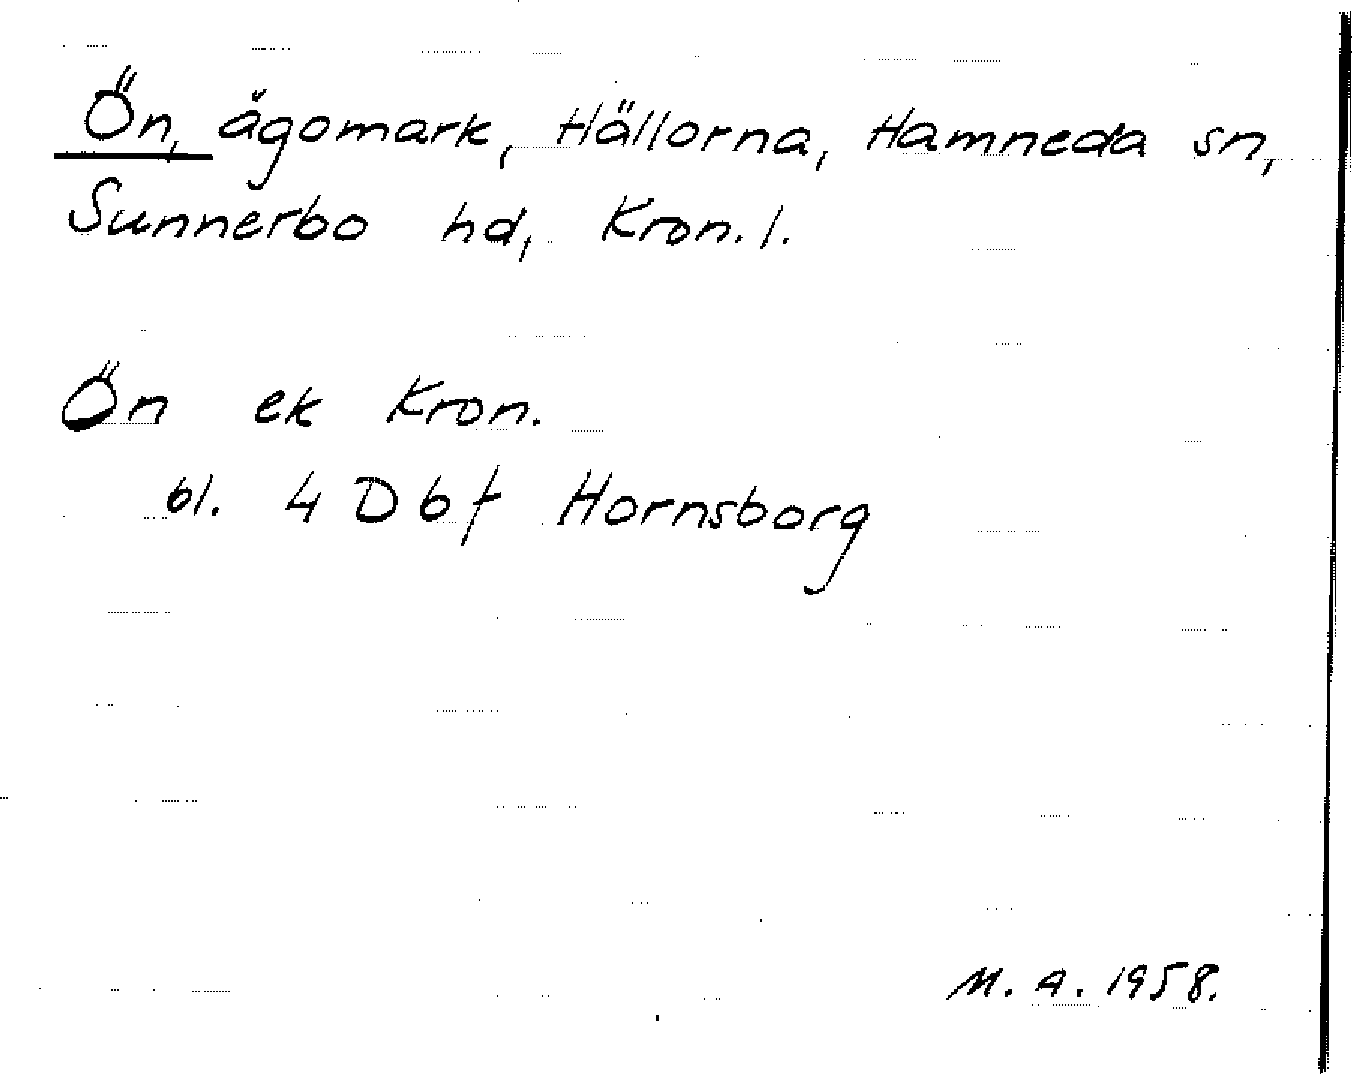 Ön, ägomark, Hällorna, Hamneda sn,
Sunnerbo hd, Kron. l.
Ön ek Kron.
bl. 4 D 6 f Hornsborg
M. A. 1958.